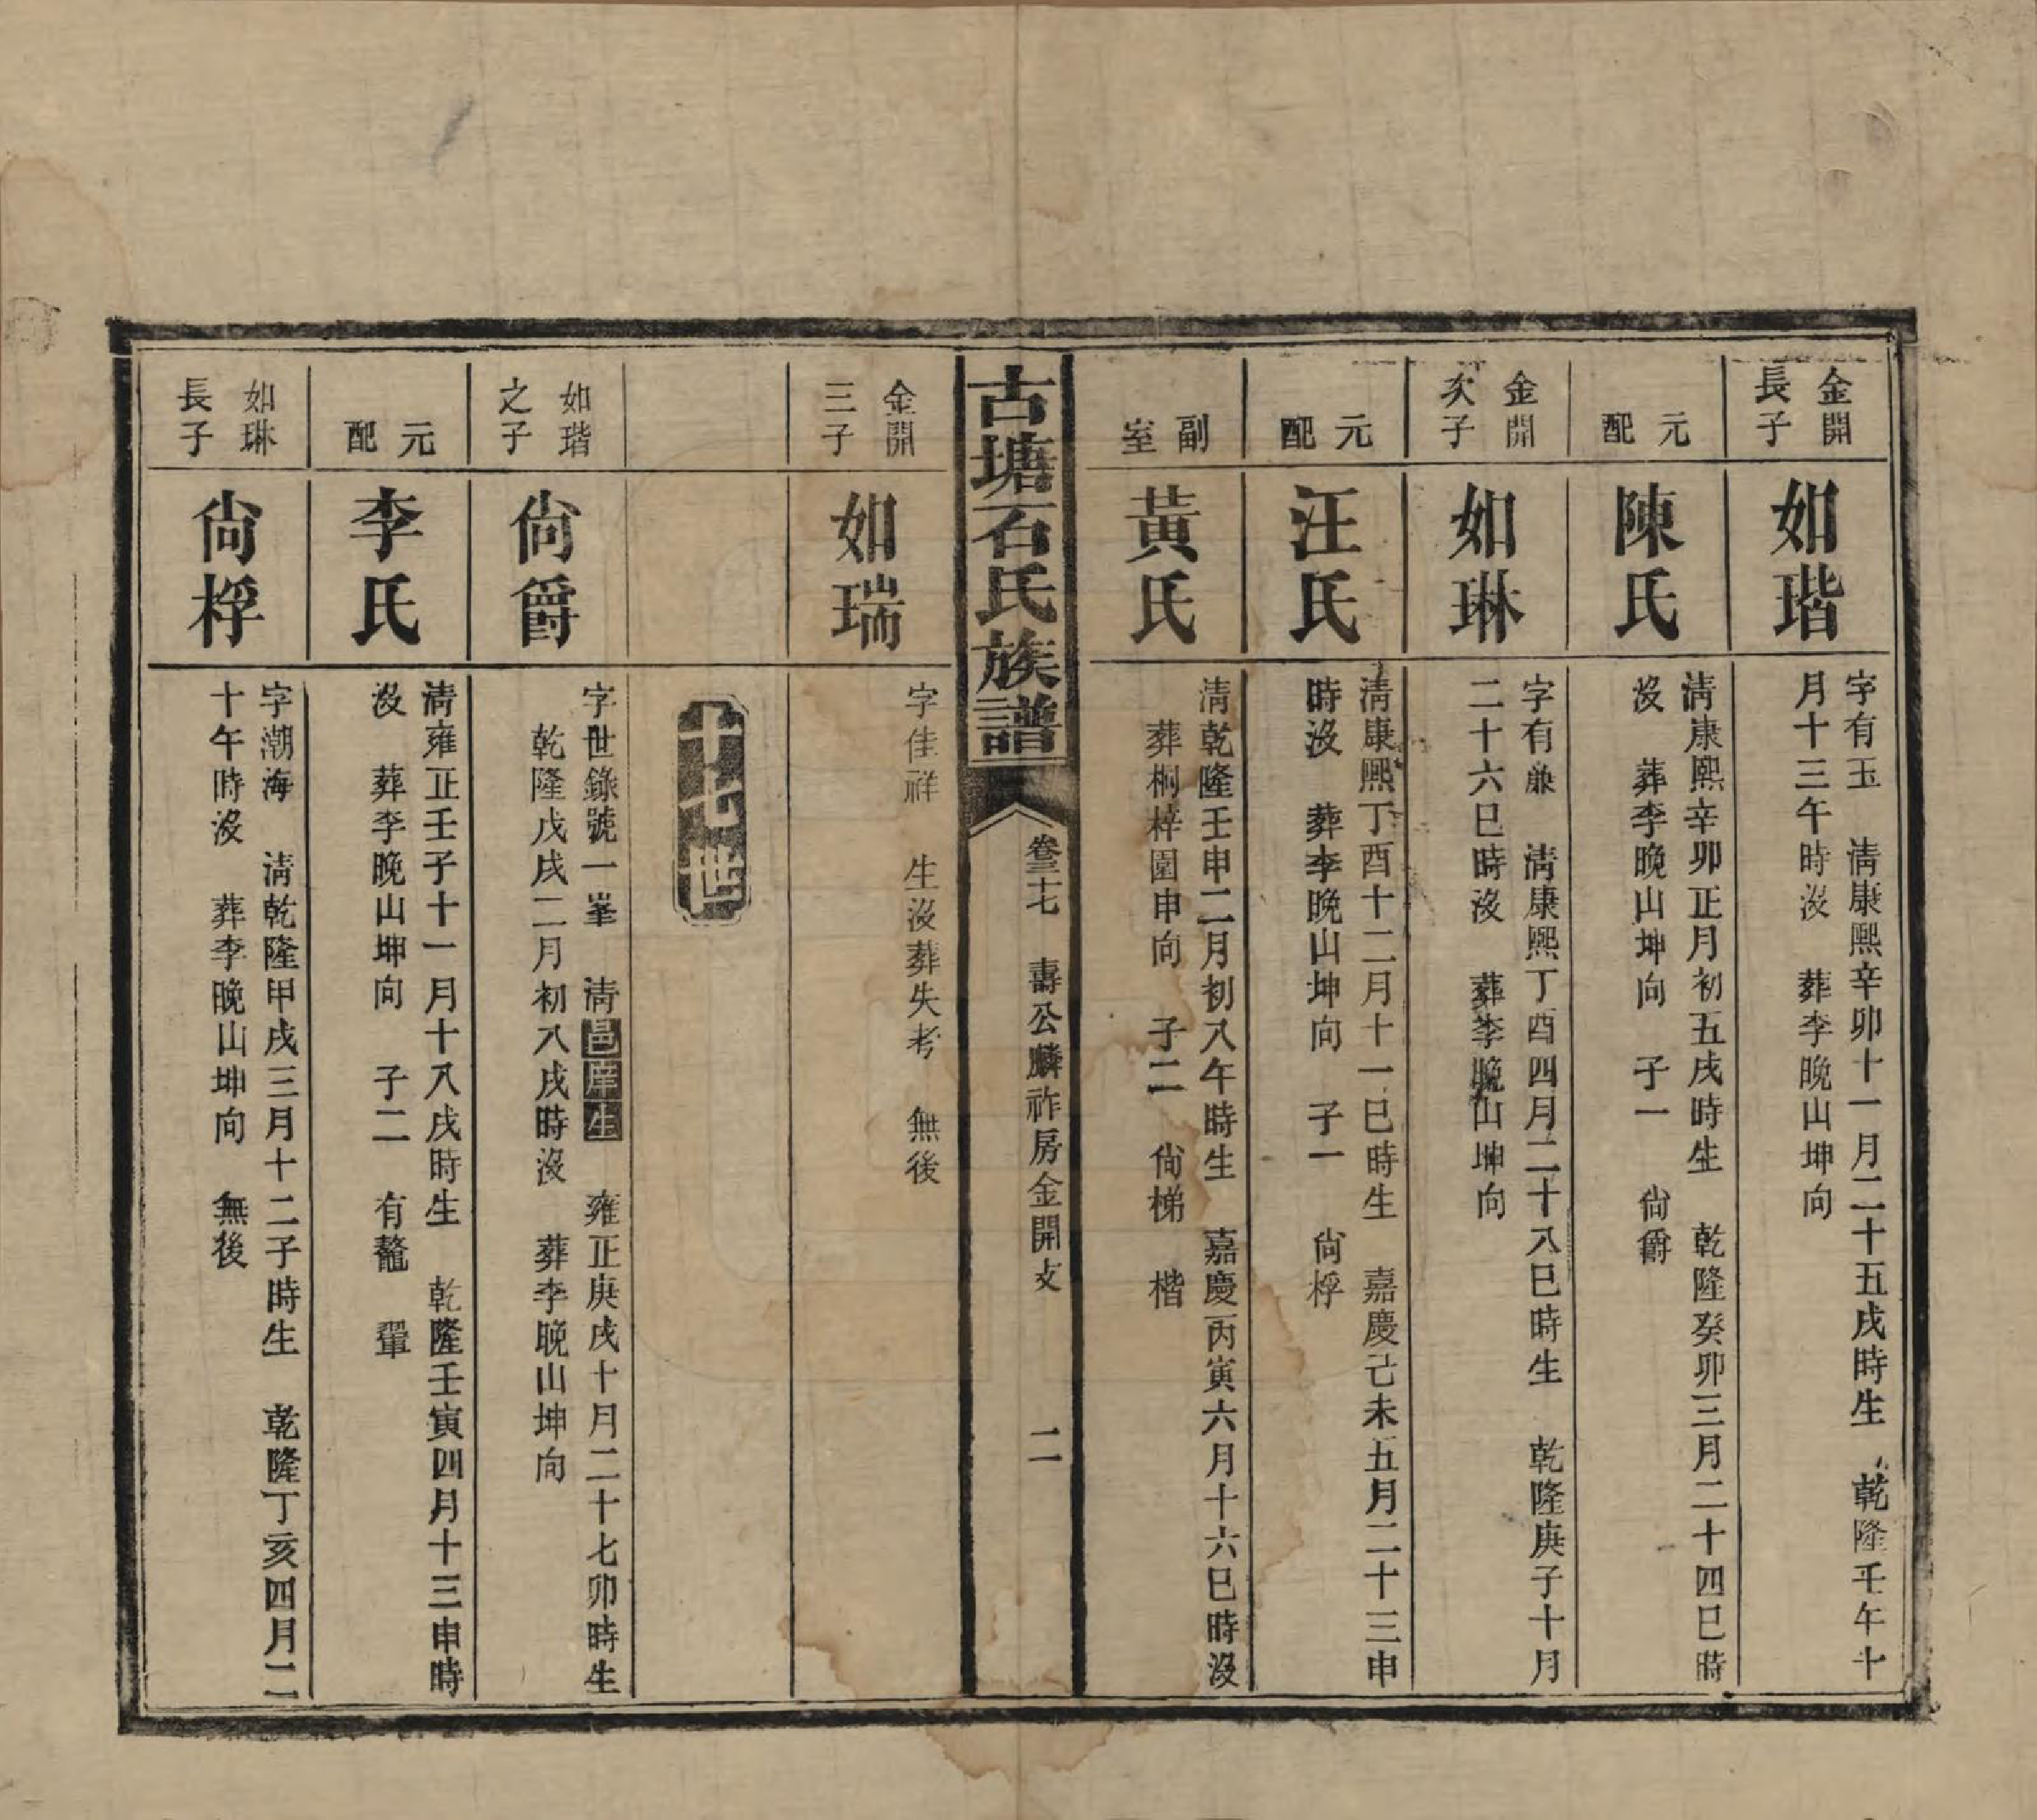 金開
長子
如瑎
字有玉　淸康熙辛卯十一月二十五戌時生　乾隆壬午十
月十三午時沒　葬李晚山坤向
元
配
陳氏
淸康熙辛卯正月初五戌時生　乾隆癸卯三月二十四巳時
沒　葬李晚山坤向　子一　尙爵
金開
次子
如琳
字有𠔥　淸康熙丁酉四月二十八巳時生　乾隆庚子十月
二十六巳時沒　葬李晚山坤向
元
配
汪氏
淸康熙丁酉十二月十一巳時生　嘉慶己未五月二十三申
時沒　葬李晚山坤向　子一　尙桴
副
室
黃氏
淸乾隆壬申二月初八午時生　嘉慶丙寅六月十六巳時沒
葬桐梓園申向　子二　尙梯　楷
古塘石氏族譜
卷三十七　壽公麟祚房金開支　二
金開
三子
如瑞
字佳祥　生沒葬失考　無後
十七世
如瑎
之子
尙爵
字世錄號一峯　淸邑庠生　雍正庚戌十月二十七卯時生
乾隆戊戌二月初八戌時沒　葬李晚山坤向
元
配
李氏
淸雍正壬子十一月十八戌時生　乾隆壬寅四月十三申時
沒　葬李晚山坤向　子二　有鼇　翬
如琳
長子
尙桴
字潮海　淸乾隆甲戌三月十二子時生　乾隆丁亥四月二
十午時沒　葬李晚山坤向　無後